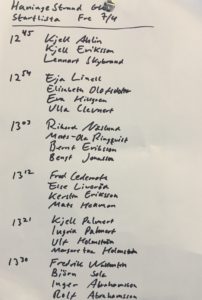 Haninge Strand GK
Startlista Fre 7/4
12 45 Kjell Ahlin
Kjell Eriksson
Lennart Skybrand
12 54 Eja Linell
Elisabeth Olofsdotter
Eva
Ulla
13 03 Rikard Näslund
Mats-Ola Ringquist
Bernt Eriksson
Bengt Jonasson
13 12 Fred Cedemets
Else
Kerstin Eriksson
Mats Hedman
13 21 Kjell Palmert
Ingvia Palmert
Ulf Holmström
Margareta Holmström
13 30 Fredrik
Björn Sala
Inger Abrahamsson
Rolf Abrahamsson